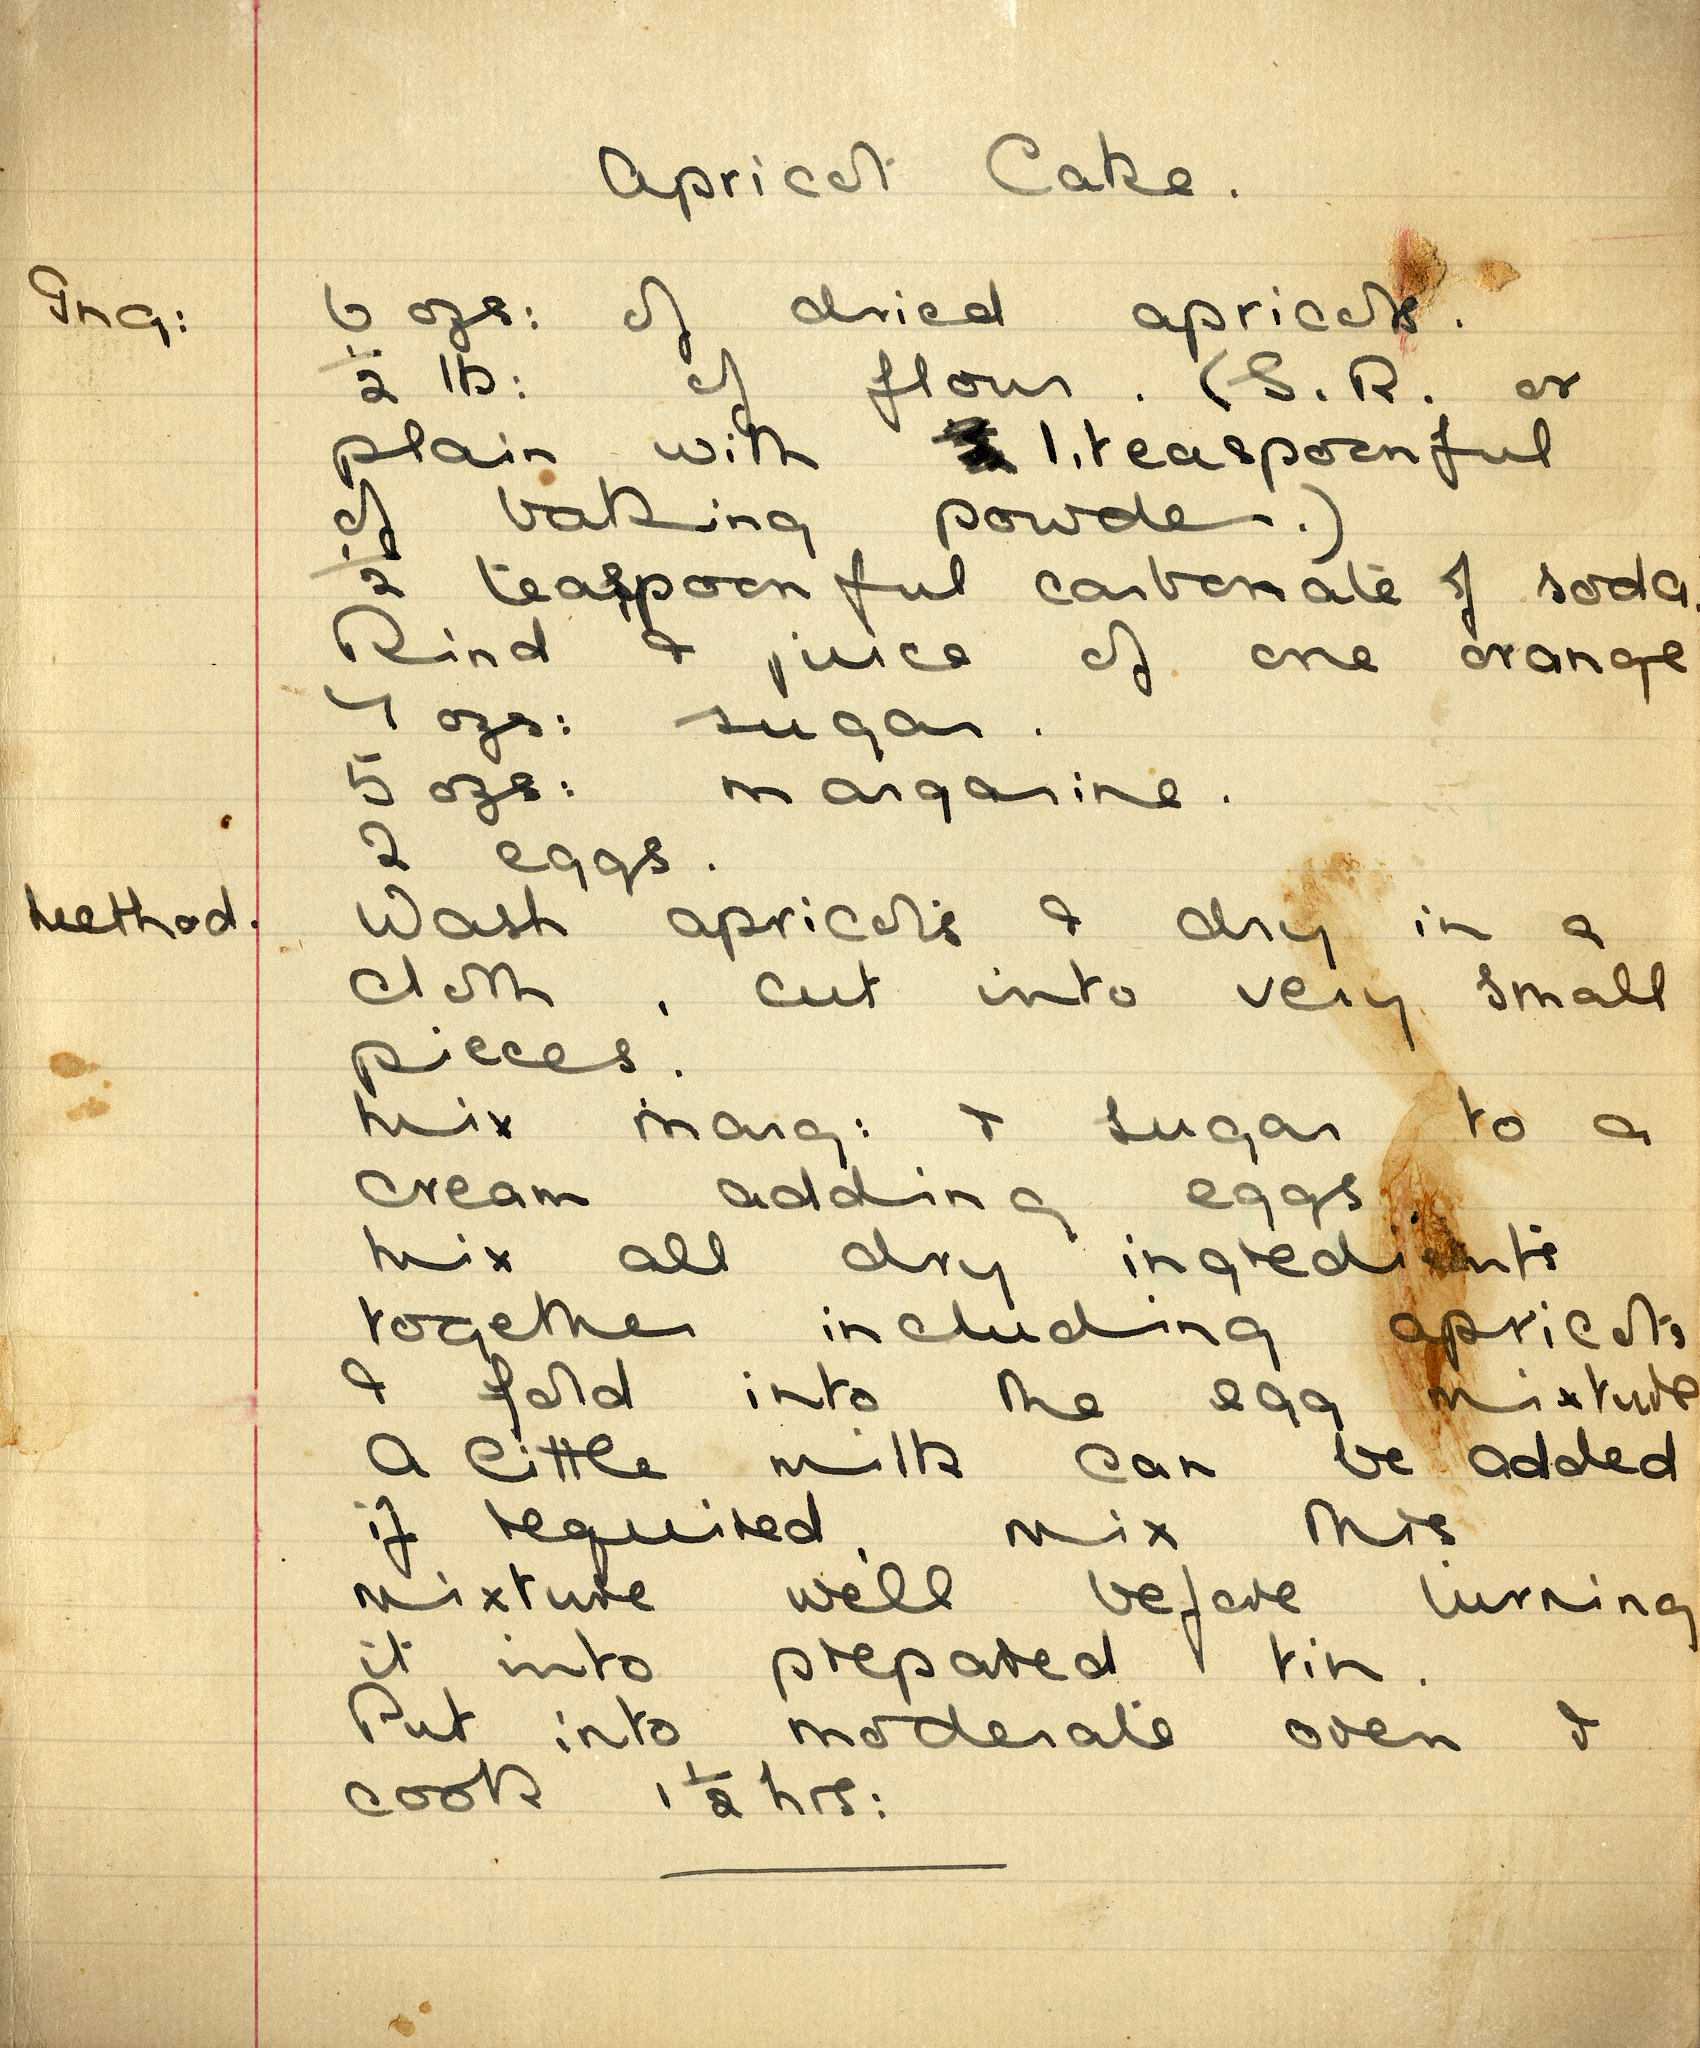 Apricot Cake.
Ing: 6 ozs: of dried apricots.
½ lb: of flour. (S.R. or
plain with 1. teaspoonful
of baking powder.)
½ teaspoonful carbonate of soda.
Rind & juice of one orange
4 ozs: sugar.
5 ozs: margarine.
2 eggs.
Method. Wash apricots & dry in a
cloth, cut into very small
pieces.
Mix marg: & sugar to a
cream adding eggs
Mix all dry ingredients
together including apricots
& fold into the egg mixture
A little milk can be added
if required, mix this
mixture well before turning
it into prepared tin.
Put into moderate oven &
cook 1½ hrs: